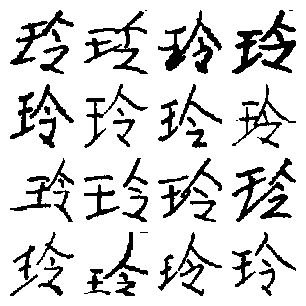 玲玲玲玲
玲玲玲玲
玲玲玲玲
玲玲玲玲